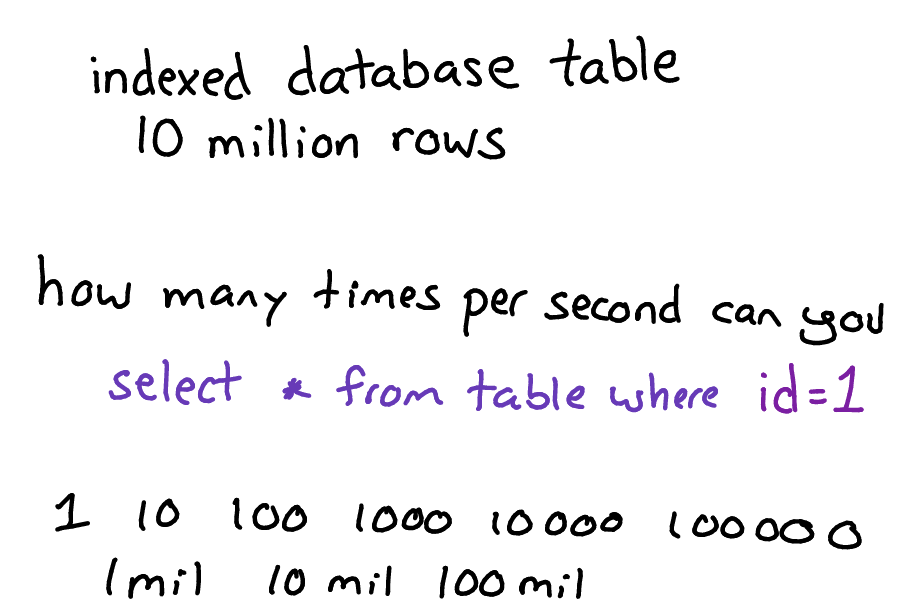 indexed database table
10 million rows
how many times per second can you
select * from table where id=1
1 10 100 1000 10000 100000
1mil 10 mil 100 mil